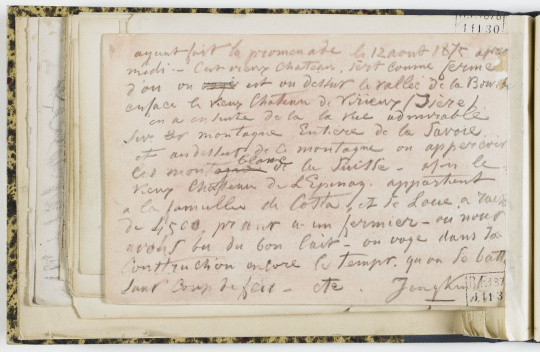 11130
ayant fait la promenade le 12 aout 1875 apres
midi - Cest vieux chateau, sert comme ferme
d'ou on est au dessur le vallée de la Bour
en face le vieux Chateau de Virieux (Isère)
on a ensuite de la la vue admirable
sur montagne Entiere de la Savoie
et au dessus de montagne on appercoit
les blanc de la Suisse - le
vieux Chateau de L'Epinay appartient
a la famille de Cotta, et se Loue a
de 4500 a un fermier - ou nous
avons bu du bon lait - on voge dans la
Construction encore le temps qu'on se batt
sans Coup de feu - etc. Jongkin